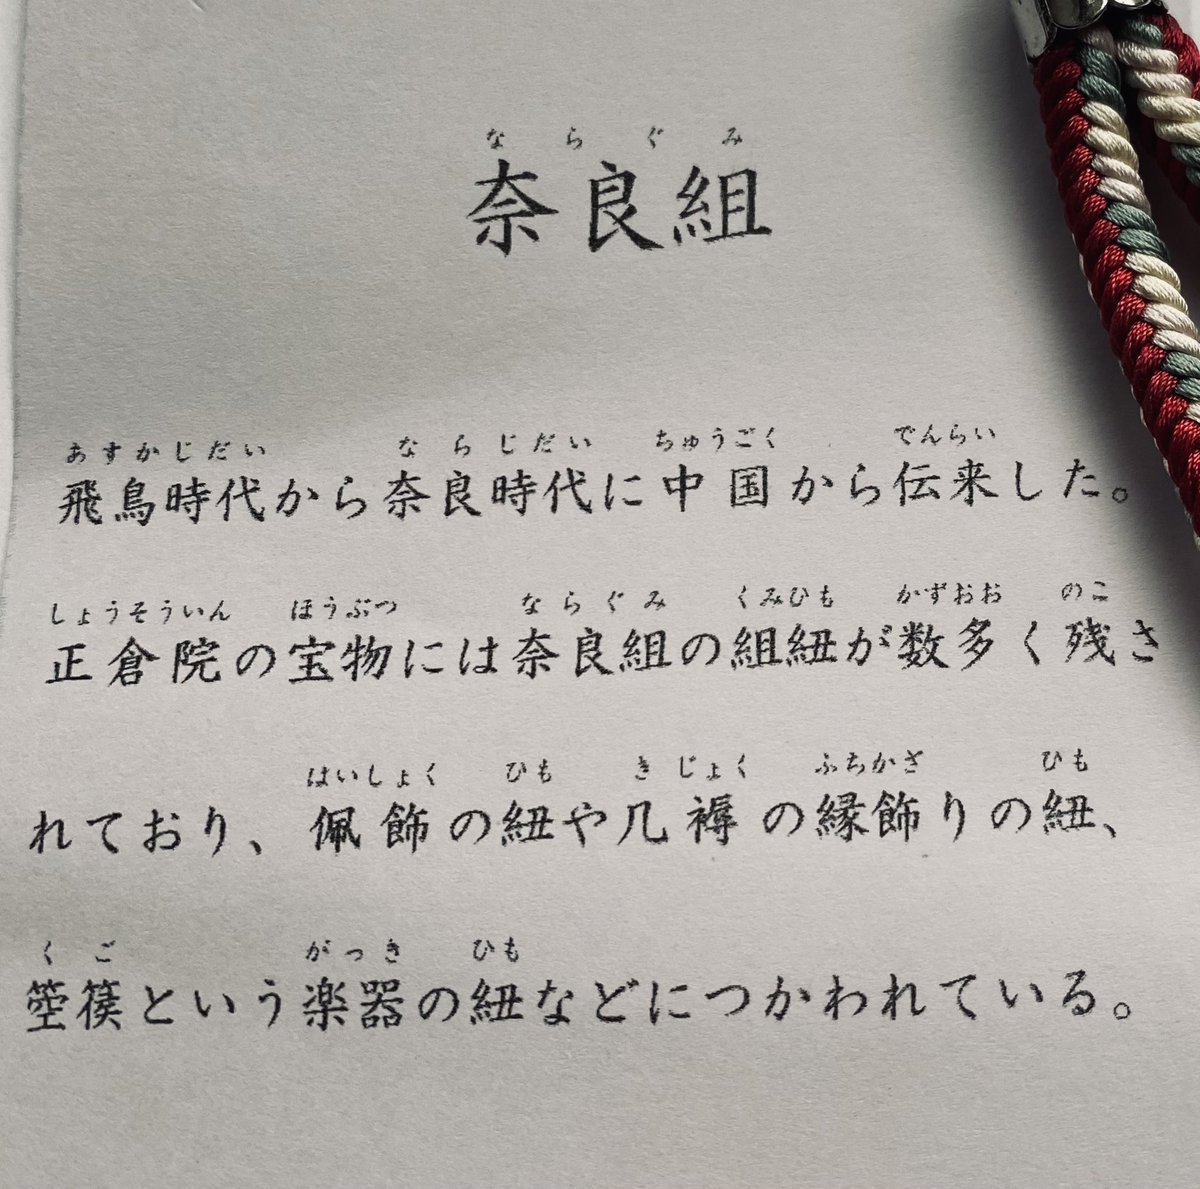 ならぐみ
奈良組
あすかじだい ならじだい ちゅうごく でんらい
飛鳥時代から奈良時代に中国から伝来した。
しょうそういん ほうぶつ ならぐみ くみひも かずおお のこ
正倉院の宝物には奈良組の組紐が数多く残さ
はいしょく ひも きじょく ふちかざ ひも
れており、佩飾の紐や几褥の縁飾りの紐、
くご がっき ひも
箜篌という楽器の紐などにつかわれている。